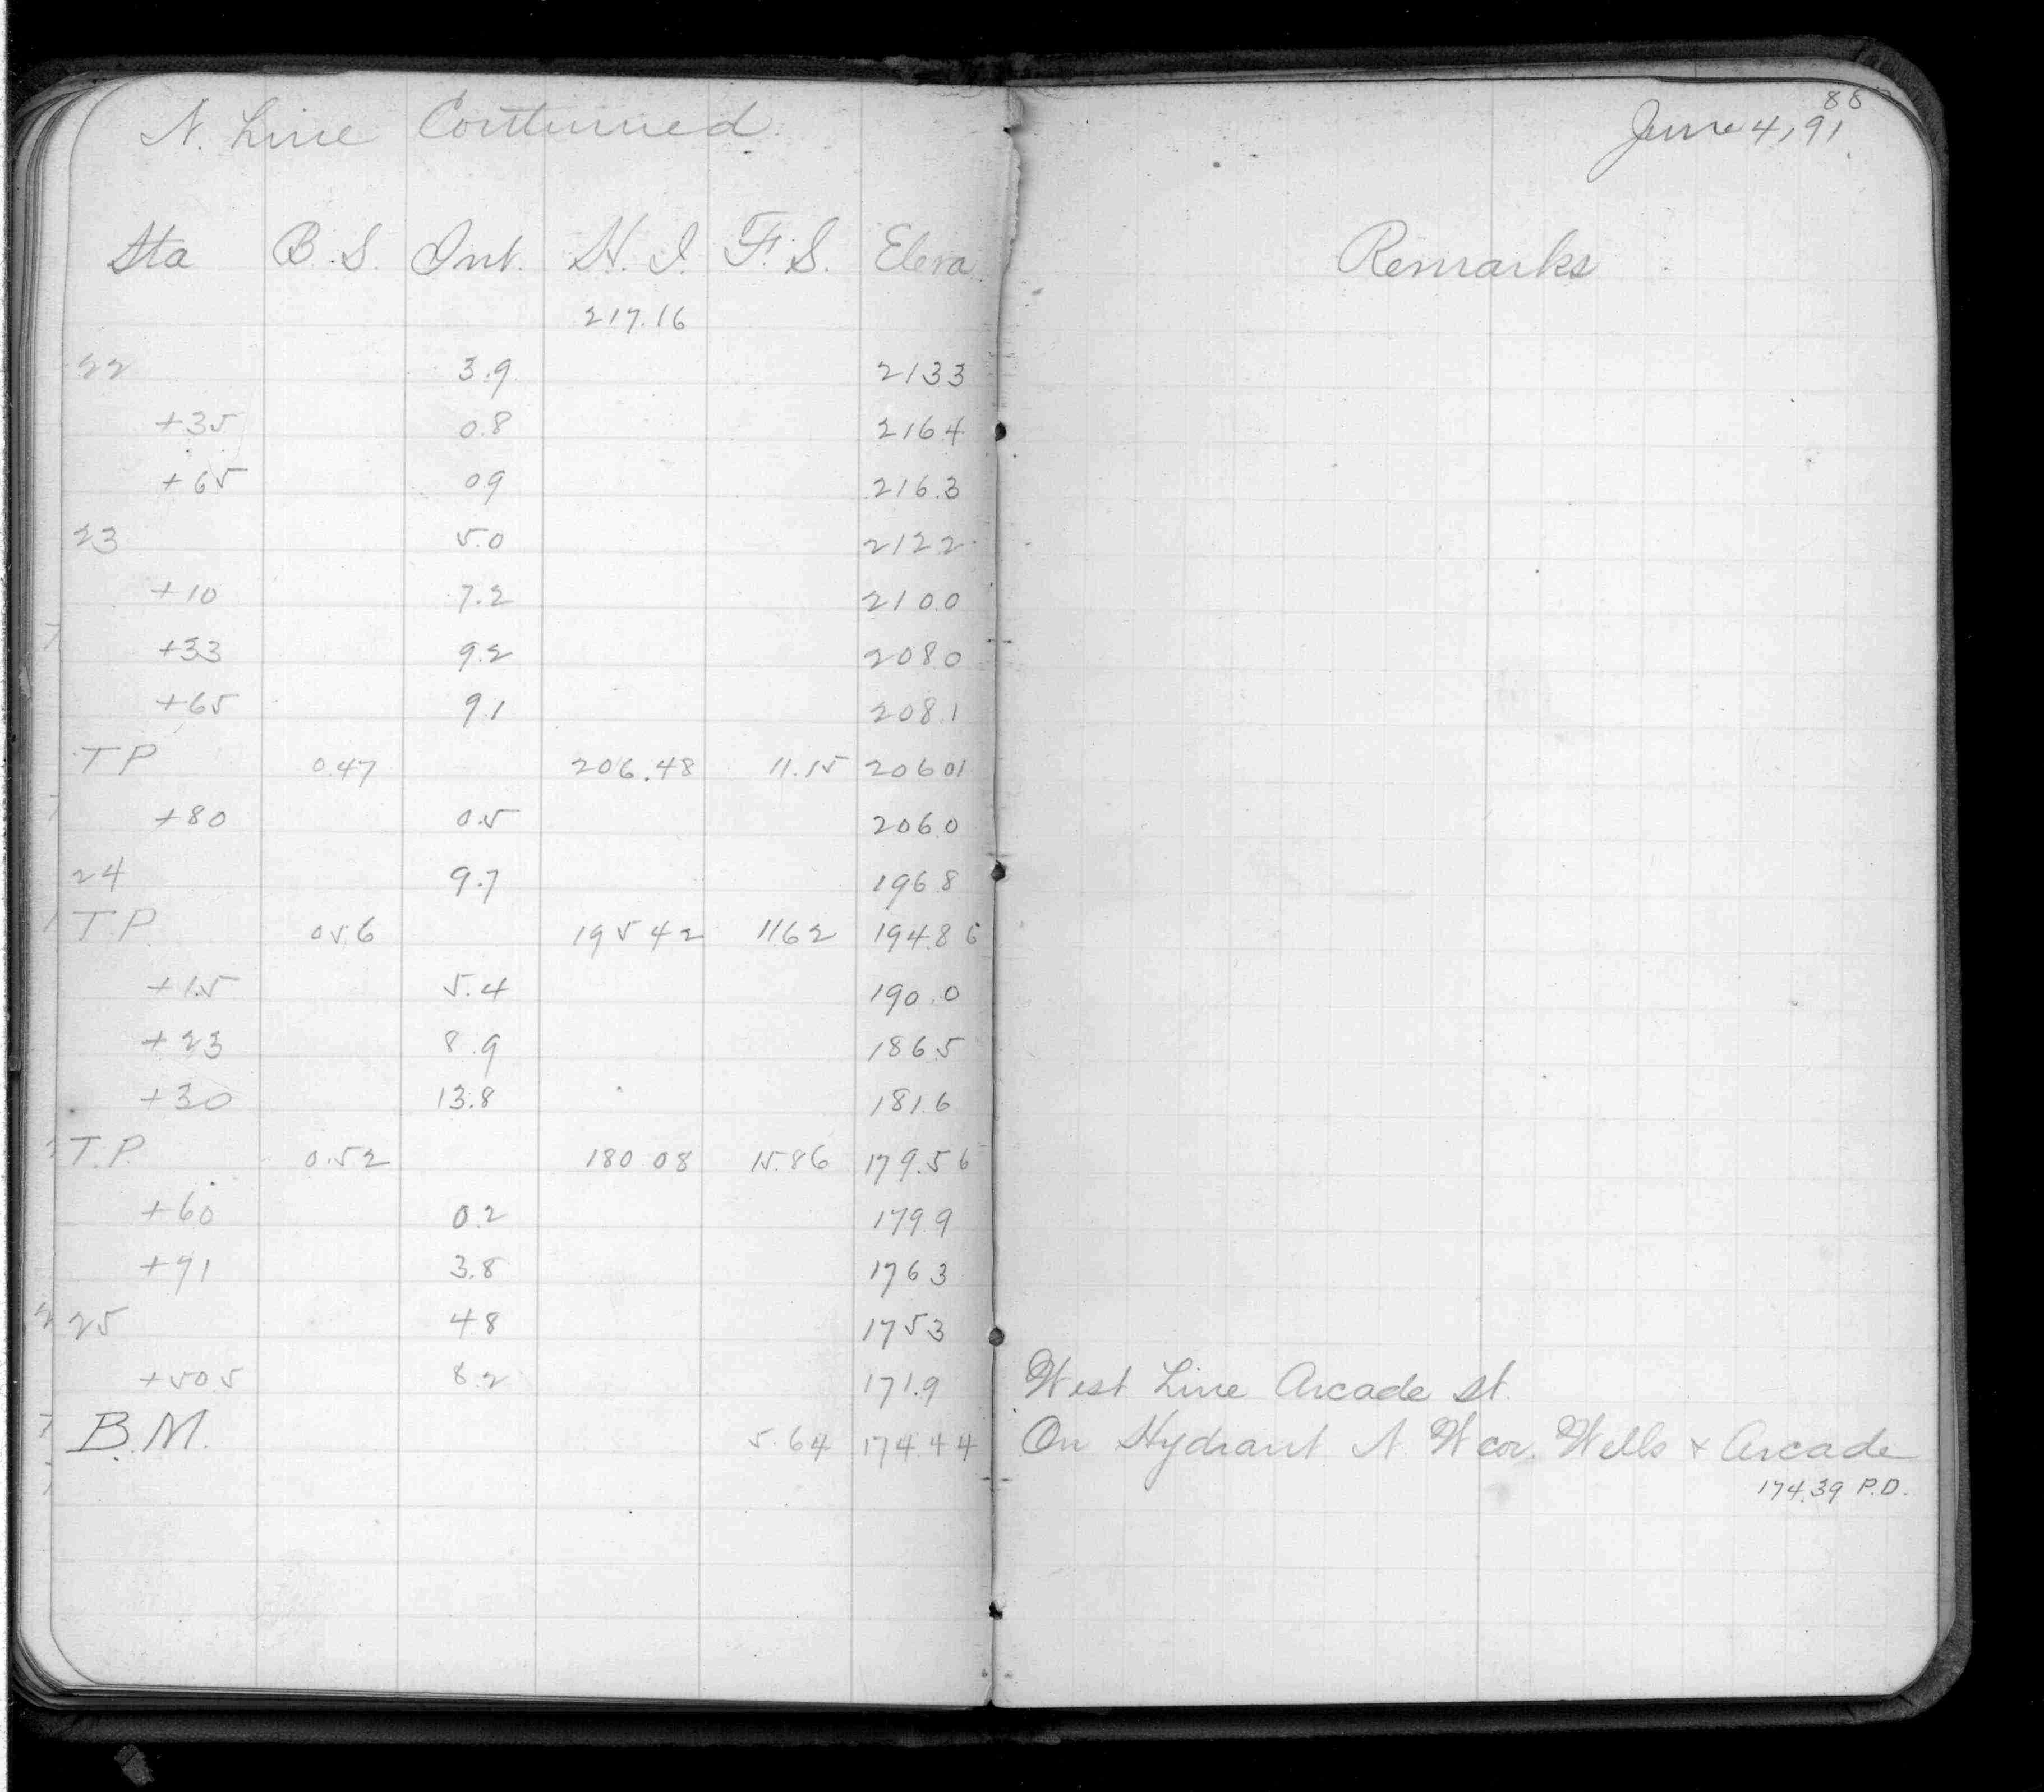 N. Line Continued
88
June 4, 91
Sta B.S. Int. H.I. F.S. Eleva
Remarks
217.16
22 3.9 2133
+35 0.8 2164
+65 09 216.3
23 5.0 2122
+10 7.2 2100
+33 9.2 2080
+65 9.1 208.1
T P 0.47 206.48 11.15 20601
+80 0.5 2060
24 9.7 196.8
T.P. 056 195 42 1162 194.86
+15 5.4 190.0
+23 8.9 1865
+30 13.8 181.6
T.P. 0.52 180 08 15.86 179.56
+60 0.2 179.9
+91 3.8 1763
25 48 1753
+505 8.2 171.9 West Line Arcade St.
B.M. 5.64 174.44 On Hydrant N. W cor. Wells & Arcade
174.39 P.D.